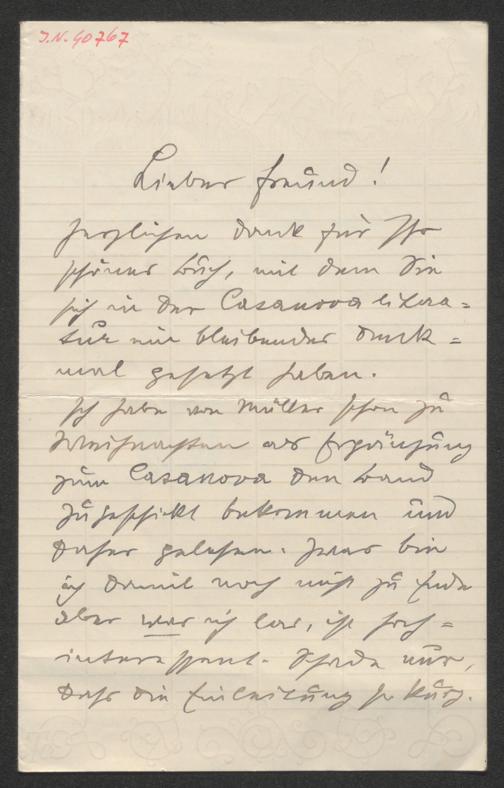 J.N. 40767
Lieber Freund!
Herzlichen Dank für Ihr
schönes Buch, mit dem Sie
sich in der Casanova litera=
tur ein bleibendes Denk=
mal gesetzt haben.
Ich habe von Müller schon zu
Weihnachten als Ergänzung
zum Casanova den Band
zugeschickt bekommen und
daher gelesen. Zwar bin
ich damit noch nicht zu Ende
aber was ich las, ist hoch=
interessant. Schade nur,
daß die Einleitung so kurz.